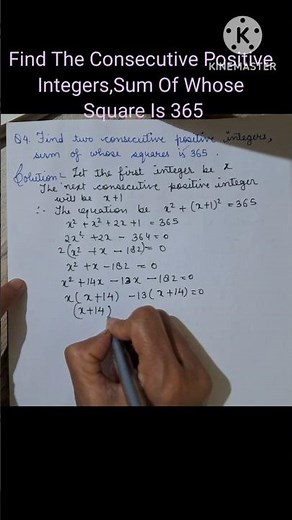 KINEMASTER
Find The Consecutive Positive
Integers,Sum Of Whose
Square Is 365
Q4. Find two consecutive positive integers,
sum of whose squares is 365.
Solution:- Let the first integer be x
The next consecutive positive integer
will be x+1
∴ The equation be x² + (x+1)² = 365
x² + x² + 2x + 1 = 365
2x² + 2x - 364 = 0
2(x² + x - 182) = 0
x² + x - 182 = 0
x² + 14x - 13x - 182 = 0
x(x+14) - 13(x+14) = 0
(x+14)